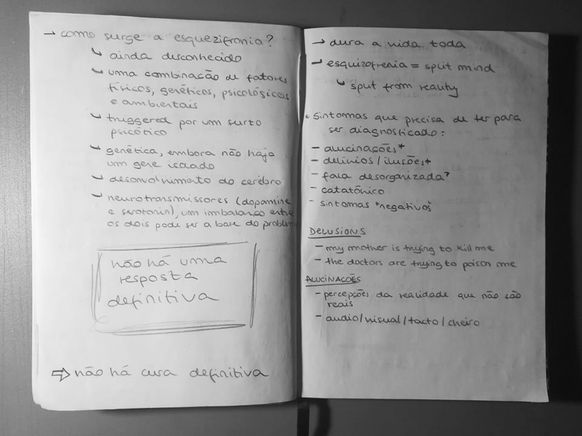 → como surge a esquezifronia?
↳ ainda desconhecido
↳ uma combinação de fatores
físicos, genéticos, psicológicos
e ambientais
↳ triggered por um surto
psicótico
↳ genética, embora não haja
um gene
↳ desenvolvimento do cérebro
↳ neurotransmissores (dopamine
e serotonin), um imbalanço entre
os dois pode ser a base do problema
não há uma
resposta
definitiva
⇒ não há cura definitiva
→ dura a vida toda
→ esquizofrenia = split mind
↳ split from reality
• Sintomas que precisa de ter para
ser diagnosticado:
- alucinações*
- delírios / ilusões*
- fala desorganizada*
- catatônico
- sintomas "negativos"
DELUSIONS
- my mother is trying to kill me
- the doctors are trying to poison me
ALUCINAÇÕES
- percepções da realidade que não são
reais
- audio/visual/tacto/cheiro